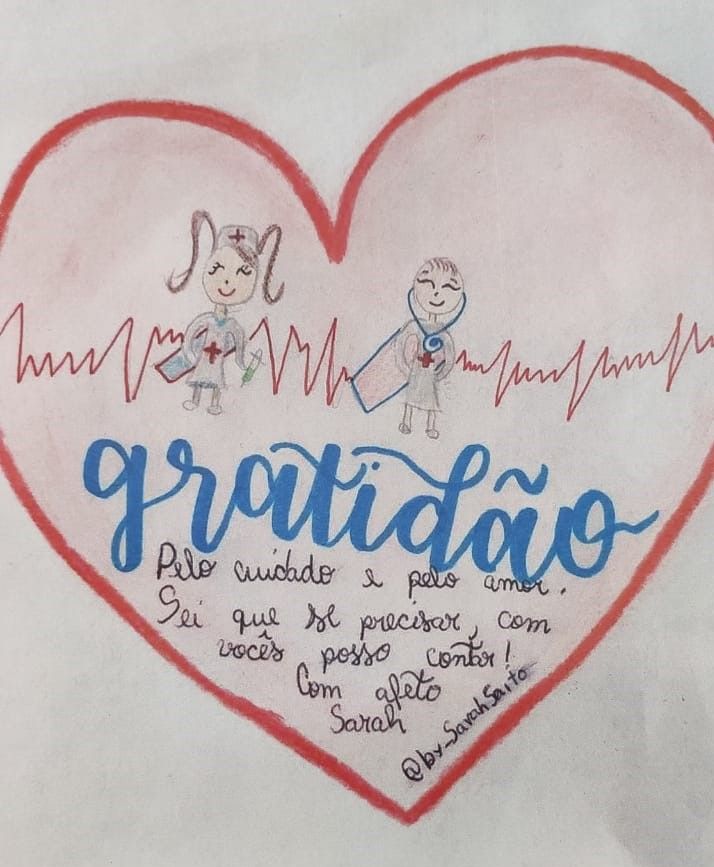 gratidão
Pelo cuidado e pelo amor.
Sei que se precisar, com
vocês posso contar!
Com afeto
Sarah
@by_SarahSaito